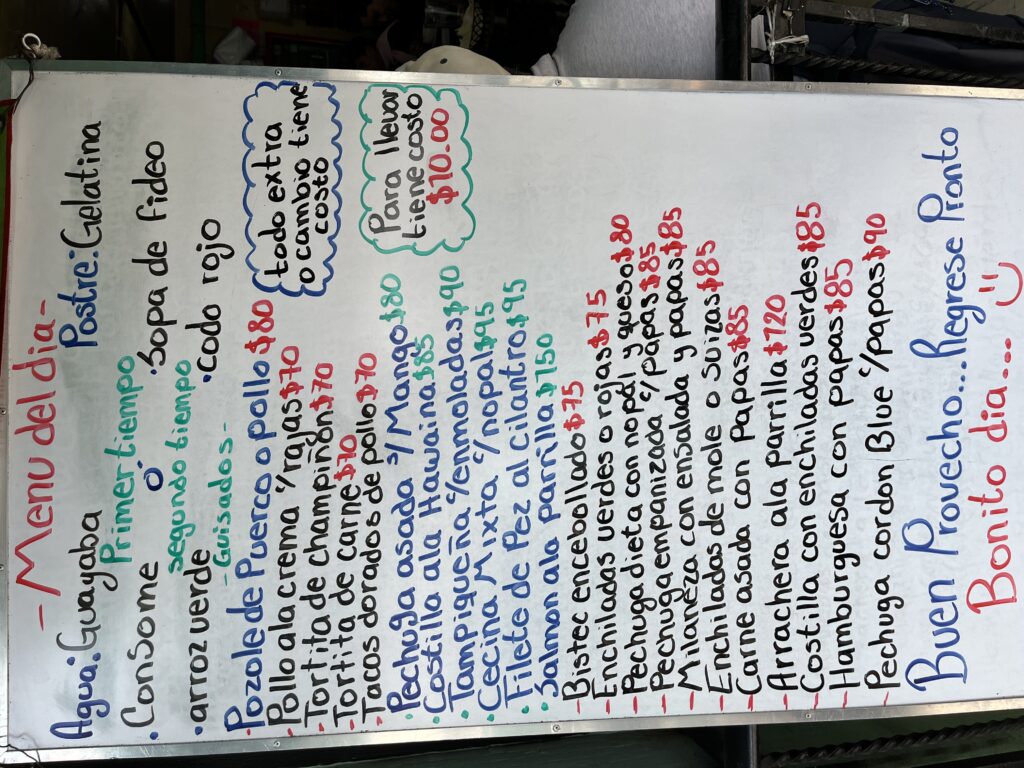 -Menu del dia-
Agua: Guayaba Postre: Gelatina
Primer tiempo
.Consome ó ·Sopa de fideo
segundo tiempo
·arroz verde ·codo rojo
-Guisados-
-Pozole de Puerco o pollo $80
-Pollo ala crema c/rajas $70
-Tortita de champiñon $70
-Tortita de carne $70
-Tacos dorados de pollo $70
todo extra
o cambio tiene
costo
·Pechuga asada s/Mango $80
·Costilla ala Hawaina $85
·Tampiqueña c/enmoladas $90
·Cecina Mixta c/nopal $95
·Filete de Pez al cilantro $95
·Salmon ala parrilla $150
Para llevar
tiene costo
$10.00
-Bistec encebollado $75
-Enchiladas verdes o rojas $75
-Pechuga dieta con nopal y queso $80
-Pechuga empanizada c/papas $85
-Milaneza con ensalada y papas $85
-Enchiladas de mole o suizas $85
-Carne asada con papas $85
-Arrachera ala parrilla $120
-Costilla con enchiladas verdes $85
-Hamburguesa con papas $85
-Pechuga cordon Blue c/papas $90
Buen Provecho...Regrese Pronto
Bonito dia...